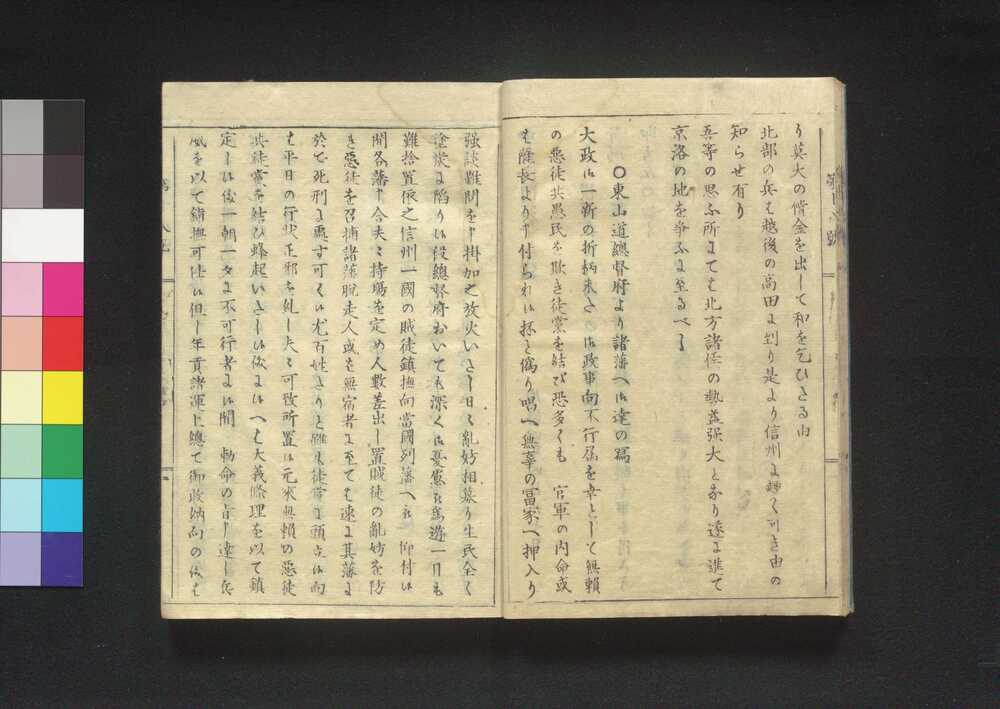 り莫大の借金を出して和を乞ひたる由
北部の兵も越後の高田に到り是より信州に趣く可き由の
知らせ有り
吾等の思ふ所にても北方諸侯の勢益強大となり遂に進て
京洛の地を爭ふに至るべし
○東山道總督府より諸藩へ御達の寫
大政御一新の折柄未だ御政事向不行届を幸として無頼
の惡徒共愚民を欺き徒黨を結び恐多くも 官軍の内命或
も薩長より申付られ候抔と僞り唱へ無辜の冨家へ押入り
強談難問を申掛加之放火いたし日々亂妨相募り生民全く
塗炭に陷り候段總督府おいても深く御憂慮被爲遊一日も
難捨置依之信州一國の賊徒鎮撫向當國列藩へ被 仰付候
間各藩申合夫々持場を定め人數差出し置賊徒の亂妨を防
き惡徒を召捕諸藩脱走人或を無宿者に至ても速に其藩に
於て死刑に處す可く候尤百姓たりと雖も徒黨に頭立候向
も平日の行状正邪を糺し夫々可致所置候元來無頼の惡徒
共徒黨を結ひ蜂起いたし候儀に候へも大義條理を以て鎮
定し候儀一朝一夕に不可行者に候間 勅命の旨申達し兵
威を以て鎮撫可仕候但し年貢諸運上總て御收納向の儀も